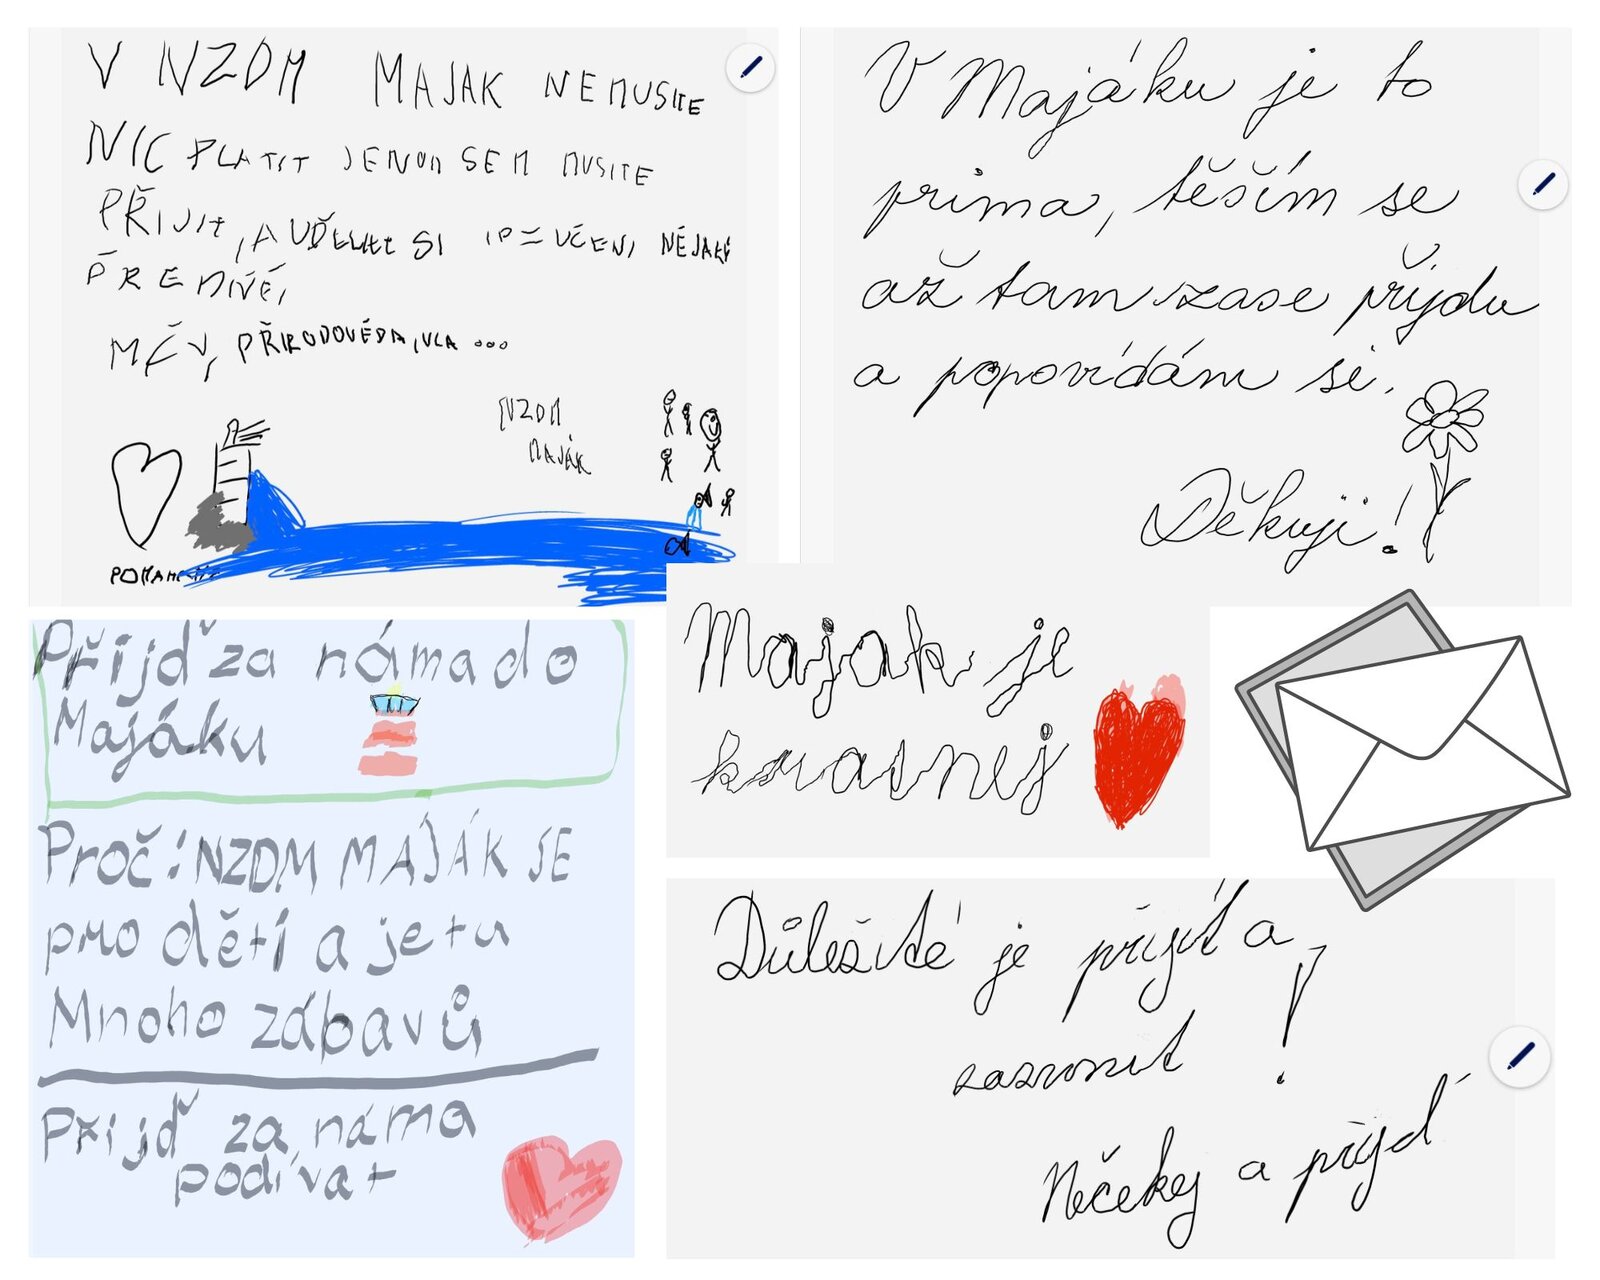 V NZDM MAJAK NEMUSITE
NIC PLATIT JENOM SEM MUSITE
PŘIJIT, A UDĚLAT SI UČENI, NĚJAKÝ
PŘEDMĚ,
MČV, PŘIRODOVĚDA, VLA ...
NZDM
MAJÁK
V Majáku je to
prima, těším se
až tam zase přijdu
a popovídám si.
Děkuji!
Přijď za náma do
Majáku
Proč: NZDM MAJÁK JE
pro děti a je tu
Mnoho zábavů
Přijď za náma
podívat
Majak je
krasnej
Důležité je přijít a
zazvonit !
Nečekej a přijď